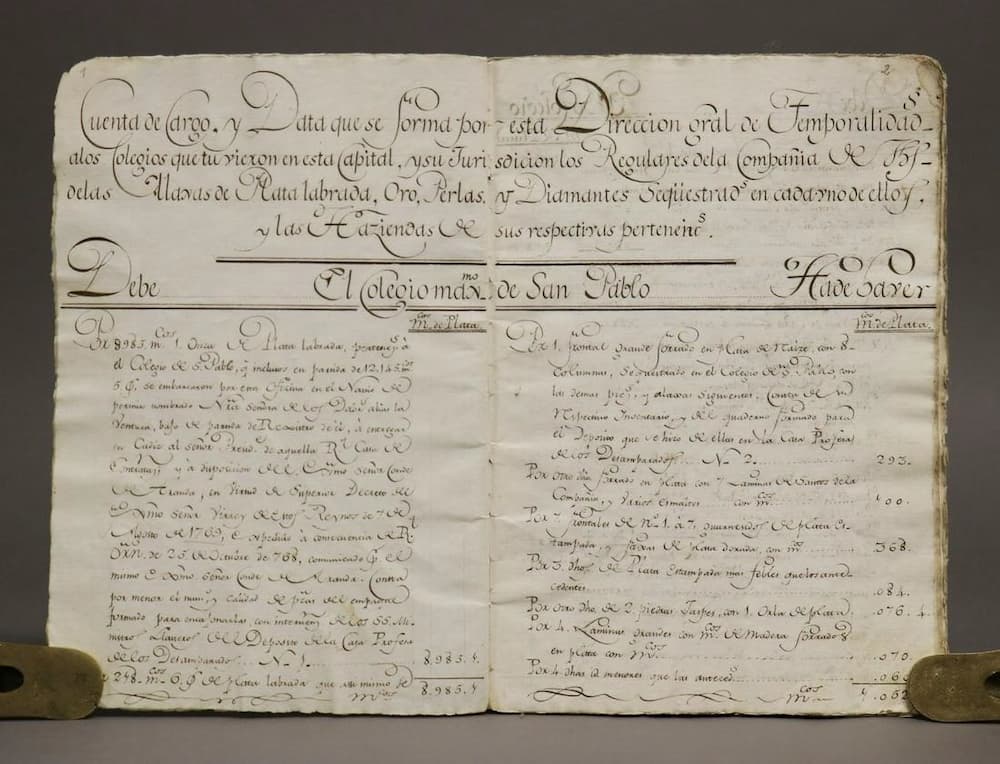 1
2
Cuenta de Cargo, y Data que se forma por esta Direccion gral de Temporalidads
alos Colegios que tuvieron en esta Capital, y su Jurisdicion los Regulares dela Compañia de Jhs
delas Allaxas de Plata labrada, Oro, Perlas, y Diamantes Seqüestrads en cada vno de ellos,
y las Haziendas de sus respectivas pertenencs.
Debe El Colegio maxmo de San Pablo Hade haver
mcos de Plata
Por 8985. mcos 1 Onza de Plata labrada, perteneste à
el Colegio de S. Pablo, q incluios en partida de
se embarcaron por esta Oficina en el Navio de
nombrado Ntra Señora de los alias la
Ventura, bajo de partida de Rexistro de à entregar
en Cadiz al señor Presid. de aquella Rl Casa de
y à disposicion del Exmo Señor Conde
de Aranda, en virtud de Superior Decreto del
Exmo Señor Virrey de estos Reynos de 7 de
Agosto de 1769, expedido à consequencia de R.
Orn. de 25 de Octubre de 768, comunicado pr. el
mismo Exmo. Señor Conde de Aranda. Consta
por menor el num. y calidad de pzas del
formado para con intervenn de los SS. Mi-
nistros Llaveros del Deposito de la Casa Profesa
de los Desamparados. No 1. 8.985.1
248. mcos 6. de plata labrada que mcos 8.985.1
mcos de Plata.
Por 1. frontal grande forrado en plata de Maize, con 8-
Columnas, Sequestrado en el Colegio de Sn. Pablo, con
las demas pzas, y alaxas siguientes. Consta de su
Respectivo Inventario, y del quaderno formado para
el Deposito que se hizo de ellas en la Casa Profesa
de los Desamparados. No 2. 293.
Por otro dho forrado en plata con 7 Laminas de Santos de la
Compañia, y varios Esmaltes con mcos 100.
Por 7. frontales de No. 1. à 7. guarnecidos de plata Es-
tampada, y de plata dorada, con mcos 368.
Por 3. dhos. de Plata Estampada mas febles que los ante-
cedentes 084.
Por otro dho. de 2. piedras Jaspes, con 1. Orla de plata 076. 4.
Por 4. Laminas grandes con mcos. de Madera forrados
en plata con mcos 070.
Por 4. dhas id menores que las anteced. 060
mcos 1.052